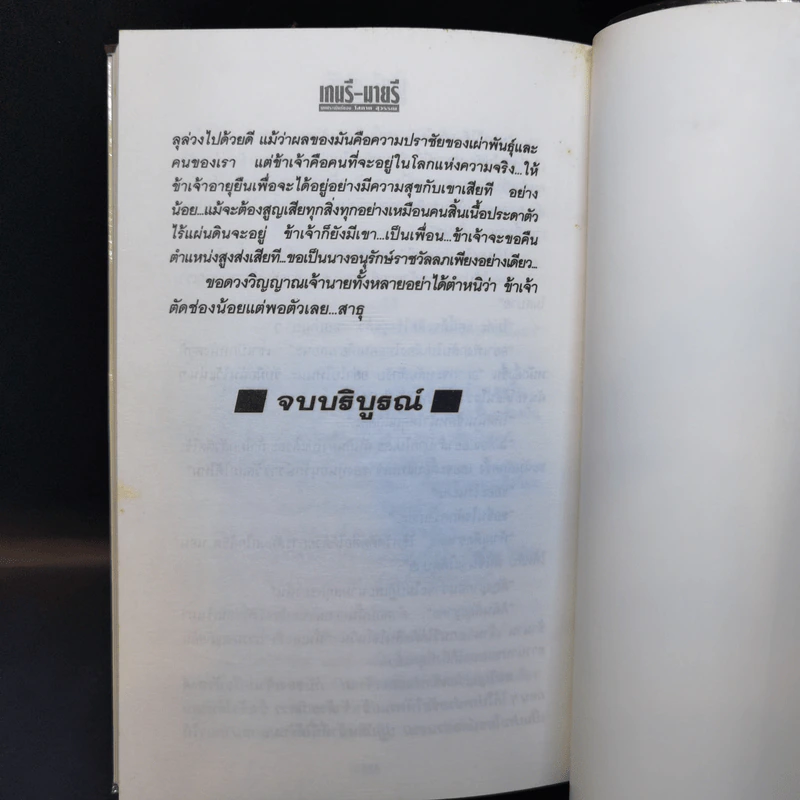 เกนรี-มายรี
ลุล่วงไปด้วยดี แม้ว่าผลของมันคือความปราชัยของเผ่าพันธุ์และ
คนของเรา แต่ข้าเจ้าคือคนที่จะอยู่ในโลกแห่งความจริง...ให้
ข้าเจ้าอายุยืนเพื่อจะได้อยู่อย่างมีความสุขกับเขาเสียที อย่าง
น้อย...แม้จะต้องสูญเสียทุกสิ่งทุกอย่างเหมือนคนสิ้นเนื้อประดาตัว
ไร้แผ่นดินจะอยู่ ข้าเจ้าก็ยังมีเขา...เป็นเพื่อน...ข้าเจ้าจะขอคืน
ตำแหน่งสูงส่งเสียที...ขอเป็นนางอนุรักษ์ราชวัลลภเพียงอย่างเดียว...
ขอดวงวิญญาณเจ้านายทั้งหลายอย่าได้ตำหนิว่า ข้าเจ้า
ตัดช่องน้อยแต่พอตัวเลย...สาธุ
จบบริบูรณ์